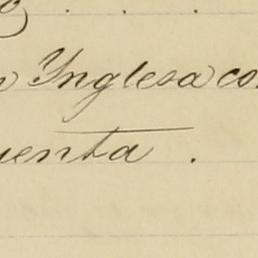 Ynglesa con
uenta .